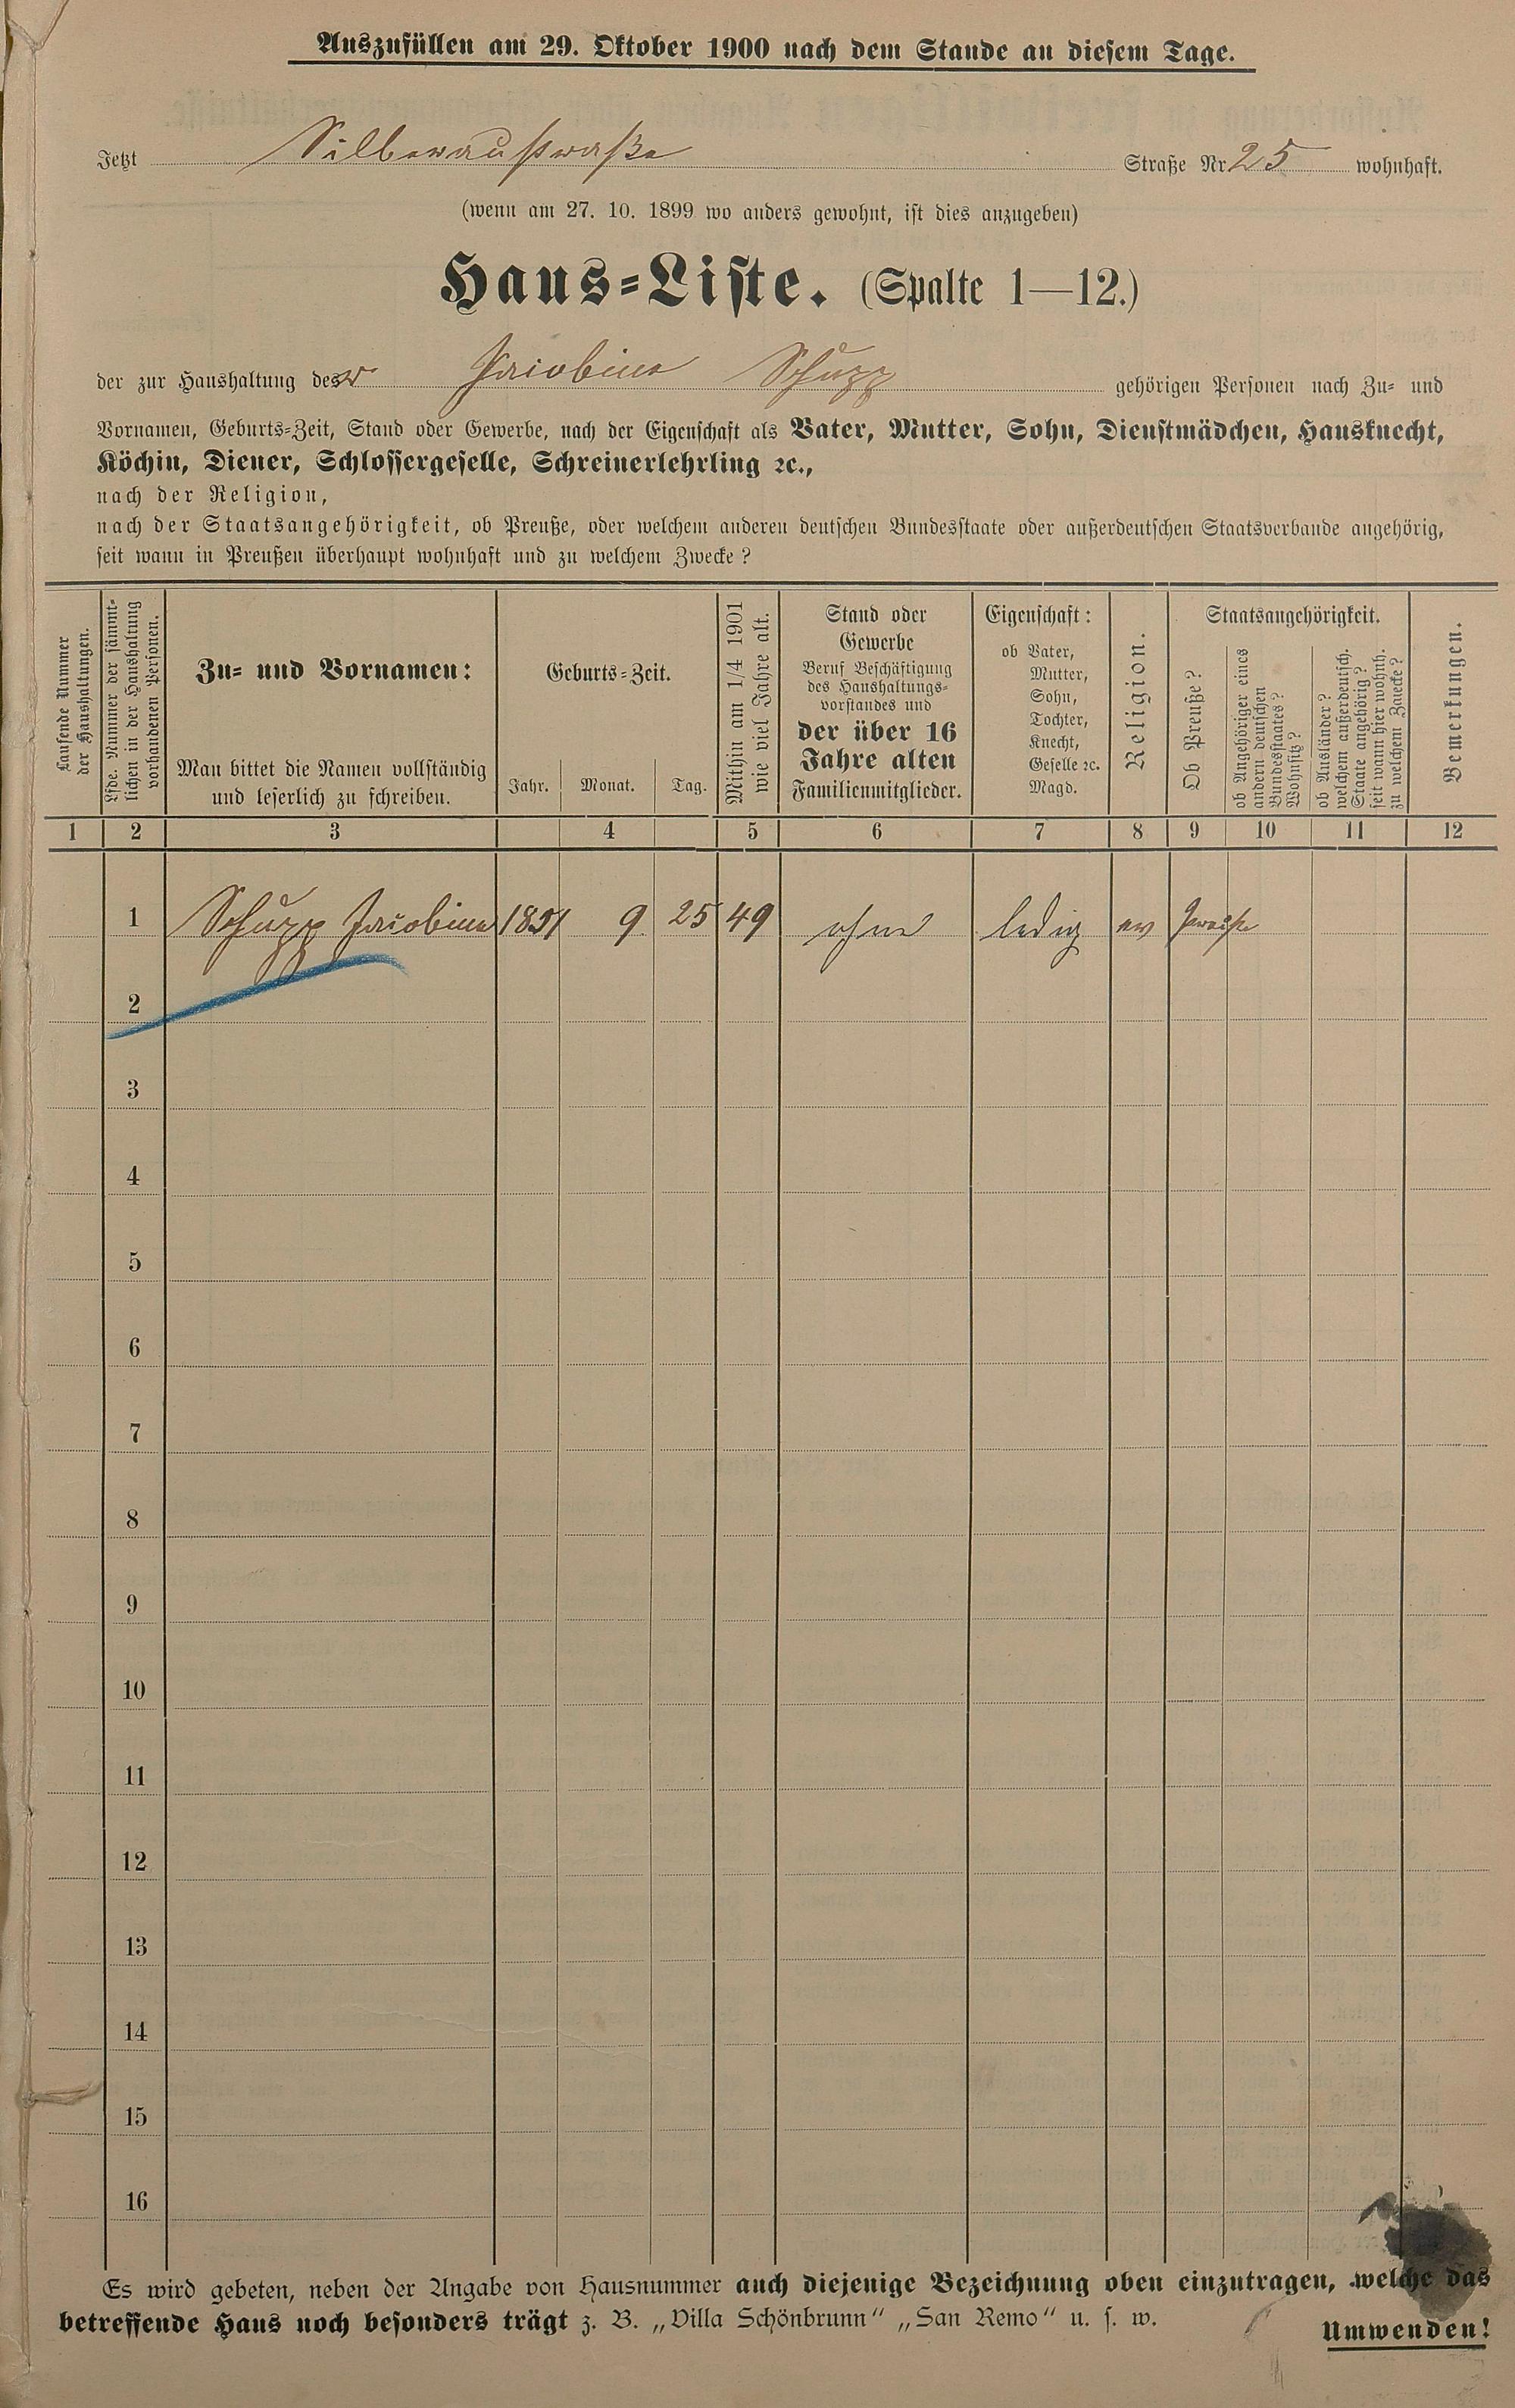 Auszufüllen am 29. Oktober 1900 nach dem Stande an diesem Tage.
Jetzt Silberaustraße Straße Nr 25 wohnhaft.
(wenn am 27. 10. 1899 wo anders gewohnt, ist dies anzugeben)
Haus-Liste. (Spalte 1—12.)
der zur Haushaltung der Jacobine Schupp gehörigen Personen nach Zu- und
Vornamen, Geburts-Zeit, Stand oder Gewerbe, nach der Eigenschaft als Vater, Mutter, Sohn, Dienstmädchen, Hausknecht,
Köchin, Diener, Schlossergeselle, Schreinerlehrling ꝛc.,
nach der Religion,
nach der Staatsangehörigkeit, ob Preuße, oder welchem anderen deutschen Bundesstaate oder außerdeutschen Staatsverbande angehörig,
seit wann in Preußen überhaupt wohnhaft und zu welchem Zwecke?
Laufende Nummer
der Haushaltungen.
Lfde. Nummer der sämmt-
lichen in der Haushaltung
vorhandenen Personen.
Zu- und Vornamen:
Man bittet die Namen vollständig
und leserlich zu schreiben.
Geburts-Zeit.
Jahr. Monat. Tag.
Mithin am 1/4 1901
wie viel Jahre alt.
Stand oder
Gewerbe
Beruf Beschäftigung
des Haushaltungs-
vorstandes und
der über 16
Jahre alten
Familienmitglieder.
Eigenschaft:
ob Vater,
Mutter,
Sohn,
Tochter,
Knecht,
Geselle ꝛc.
Magd.
Religion.
Staatsangehörigkeit.
Ob Preuße?
ob Angehöriger eines
andern deutschen
Bundesstaates?
Wohnsitz?
ob Ausländer?
welchem außerdeutsch.
Staate angehörig?
seit wann hier wohnh.
zu welchem Zwecke?
Bemerkungen.
1 2 3 4 5 6 7 8 9 10 11 12
1 Schupp Jacobine 1851 9 25 49 ohne ledig ev Preuße
2
3
4
5
6
7
8
9
10
11
12
13
14
15
16
Es wird gebeten, neben der Angabe von Hausnummer auch diejenige Bezeichnung oben einzutragen, welche das
betreffende Haus noch besonders trägt z. B. „Villa Schönbrunn“ „San Remo“ u. s. w.
Umwenden!